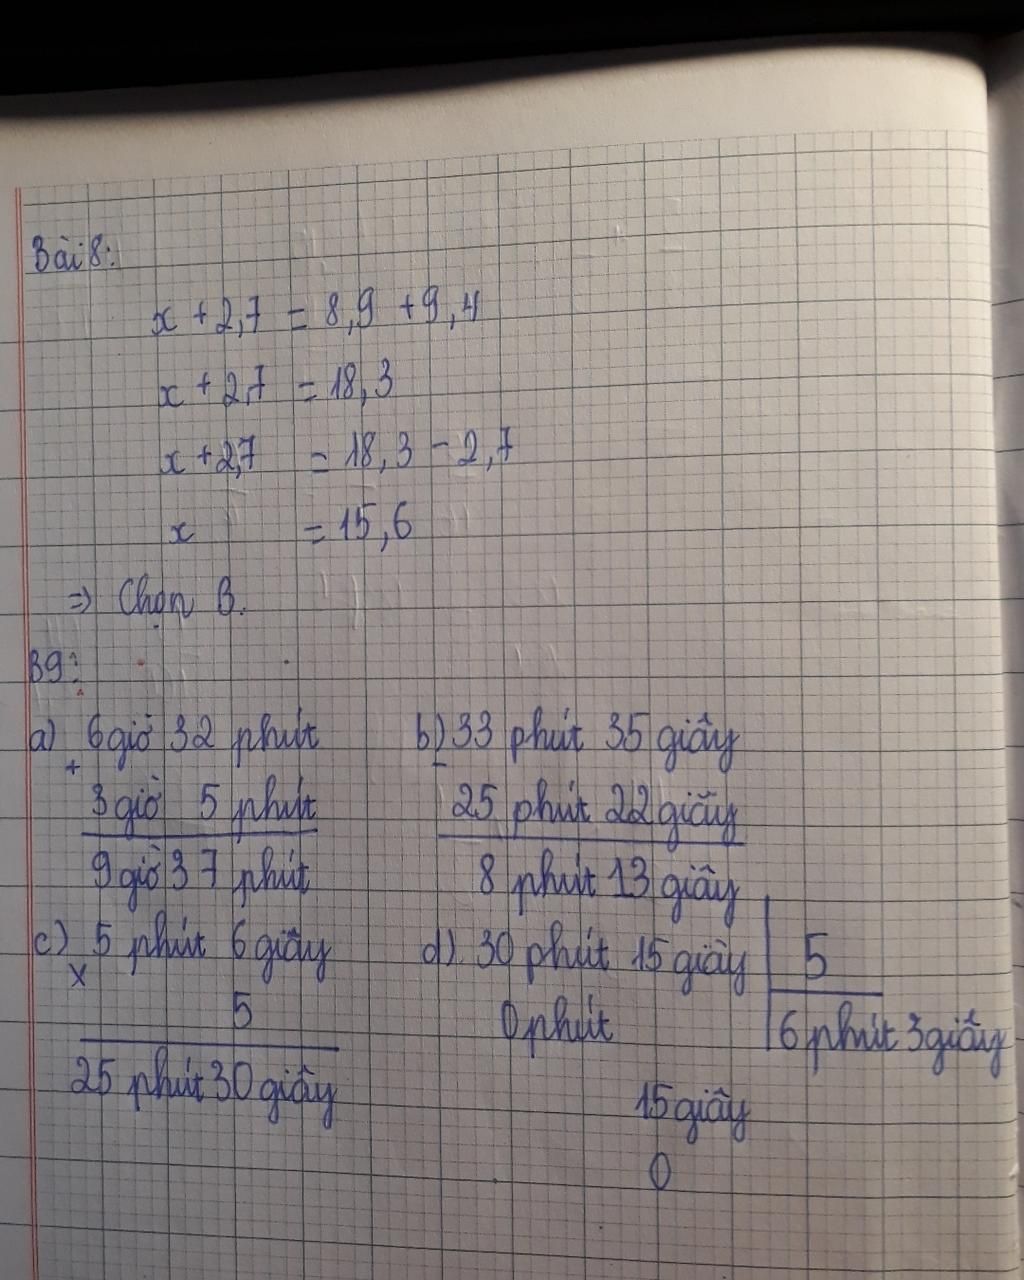 Bài 8:
x + 2,7 = 8,9 + 9,4
x + 2,7 = 18,3
x + 2,7 = 18,3 - 2,7
x = 15,6
=> Chọn B.
B9:
a) 6 giờ 32 phút
+
3 giờ 5 phút
9 giờ 37 phút
b) 33 phút 35 giây
-
25 phút 22 giây
8 phút 13 giây
c) 5 phút 6 giây
x
5
25 phút 30 giây
d) 30 phút 15 giây 5
0 phút 6 phút 3 giây
15 giây
0